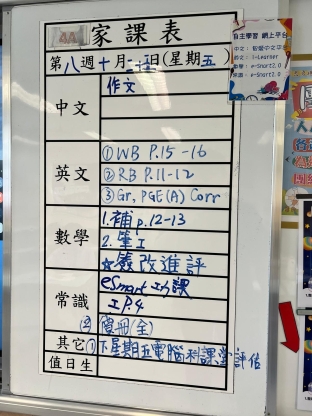 4A 家課表
第八週十月二十五日(星期五)
自主學習 網上平台
中文: 智愛中文平台
英文: i-Learner
數學: e-Smart2.0
常識: e-Smart2.0
中文
作文
英文
① WB P.15-16
② RB P.11-12
③ Gr, PGE(A) Corr
數學
1. 補 p.12-13
2. 筆工
☆簽改進評
常識
eSmart 功課
工 P.4
② 簽冊(全)
其它 ① 下星期五電腦科課堂評估
值日生